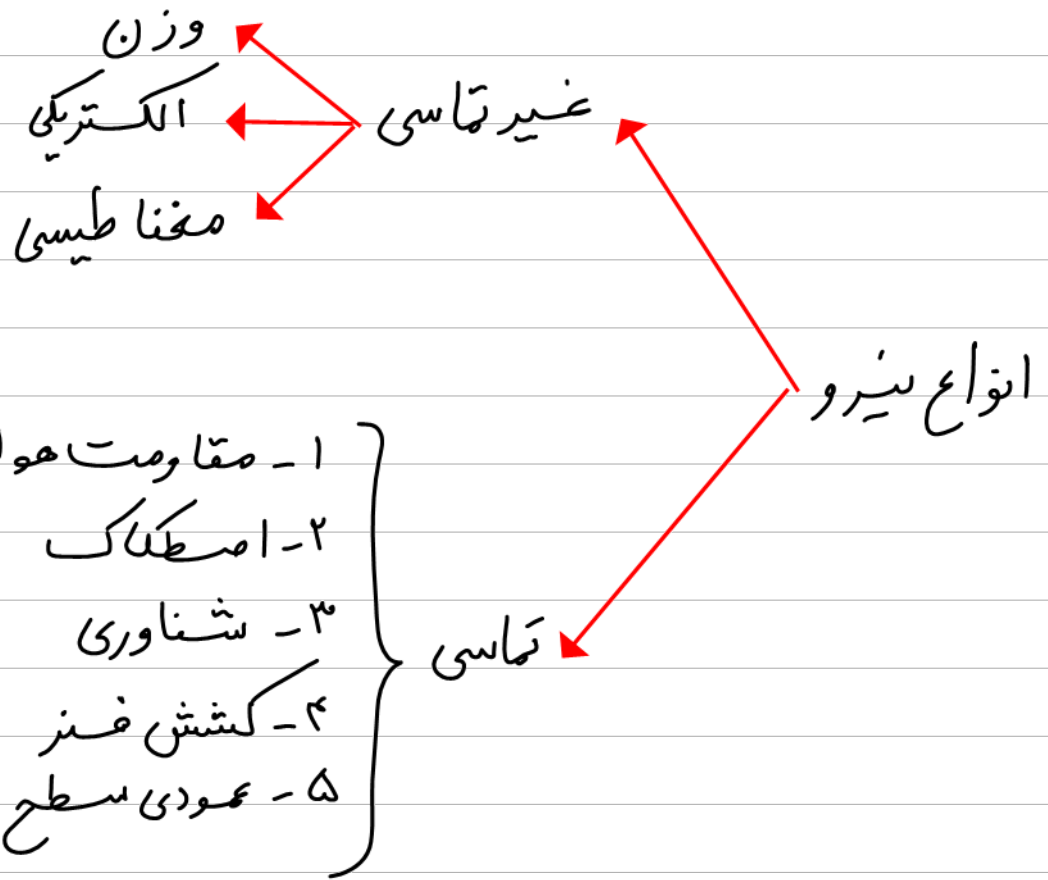 انواع نیرو
غیر تماسی
وزن
الکتریکی
مغناطیسی
تماسی
۱- مقاومت هوا
۲- اصطکاک
۳- شناوری
۴- کشش فنر
۵- عمودی سطح